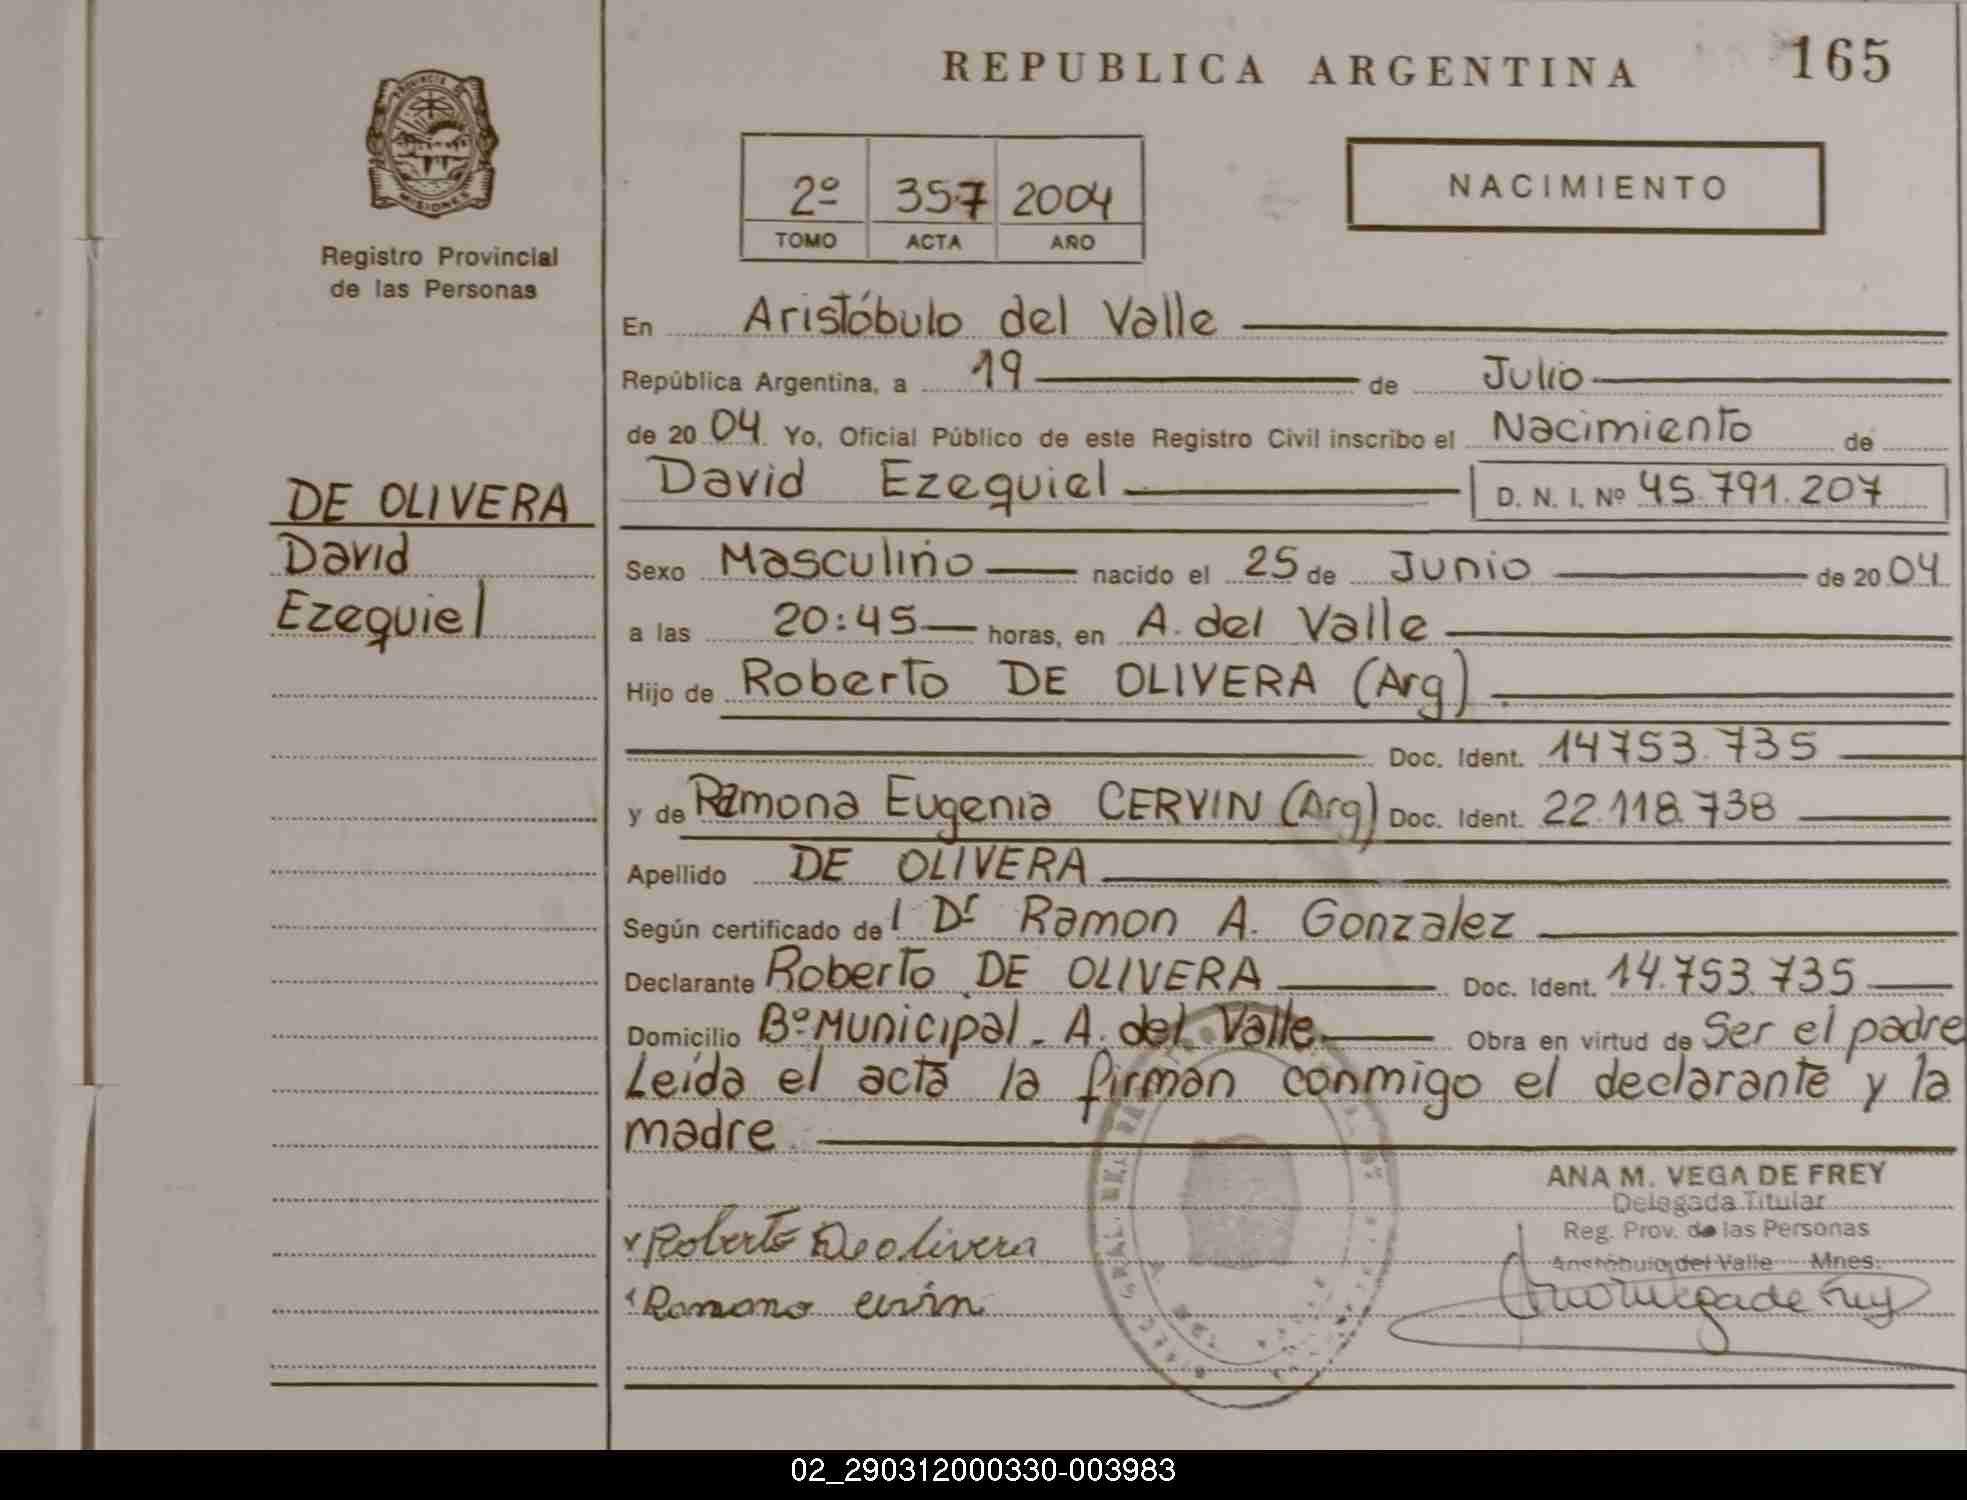 REPUBLICA ARGENTINA 165
PROVINCIA DE
MISIONES
Registro Provincial
de las Personas
2º 357 2004
TOMO ACTA AÑO
NACIMIENTO
En Aristóbulo del Valle
República Argentina, a 19 de Julio
de 2004 Yo, Oficial Público de este Registro Civil inscribo el Nacimiento de
David Ezequiel D. N. I. Nº 45.791.207
DE OLIVERA
David
Ezequiel
Sexo Masculino nacido el 25 de Junio de 2004
a las 20:45 horas, en A. del Valle
Hijo de Roberto DE OLIVERA (Arg).
Doc. Ident. 14753.735
y de Ramona Eugenia CERVIN (Arg) Doc. Ident. 22.118.738
Apellido DE OLIVERA
Según certificado del Dr Ramon A. Gonzalez
Declarante Roberto DE OLIVERA Doc. Ident. 14.753.735
Domicilio Bº Municipal - A. del Valle Obra en virtud de Ser el padre
Leída el acta la firman conmigo el declarante y la
madre
ANA M. VEGA DE FREY
Delegada Titular
Reg. Prov. de las Personas
Aristóbulo del Valle Mnes.
Roberto De olivera
Ramona
02_290312000330-003983